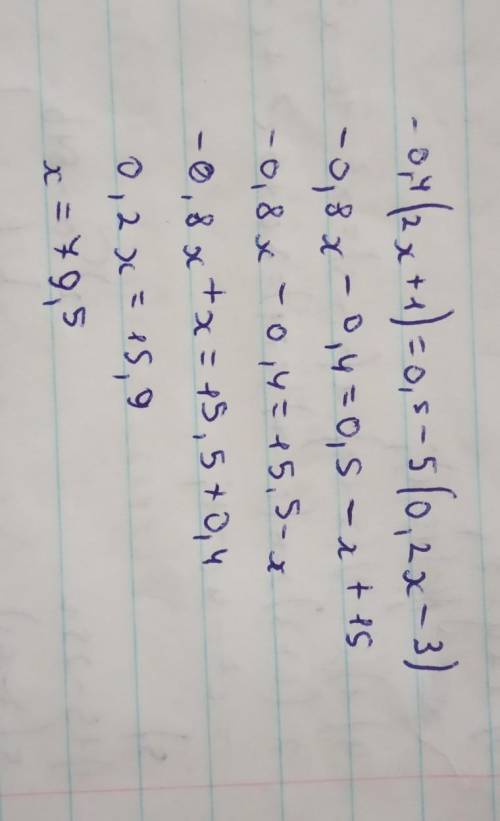 -0,4(2x+1)=0,5-5(0,2x-3)
-0,8x-0,4=0,5-x+15
-0,8x-0,4=15,5-x
-0,8x+x=15,5+0,4
0,2x=15,9
x=79,5